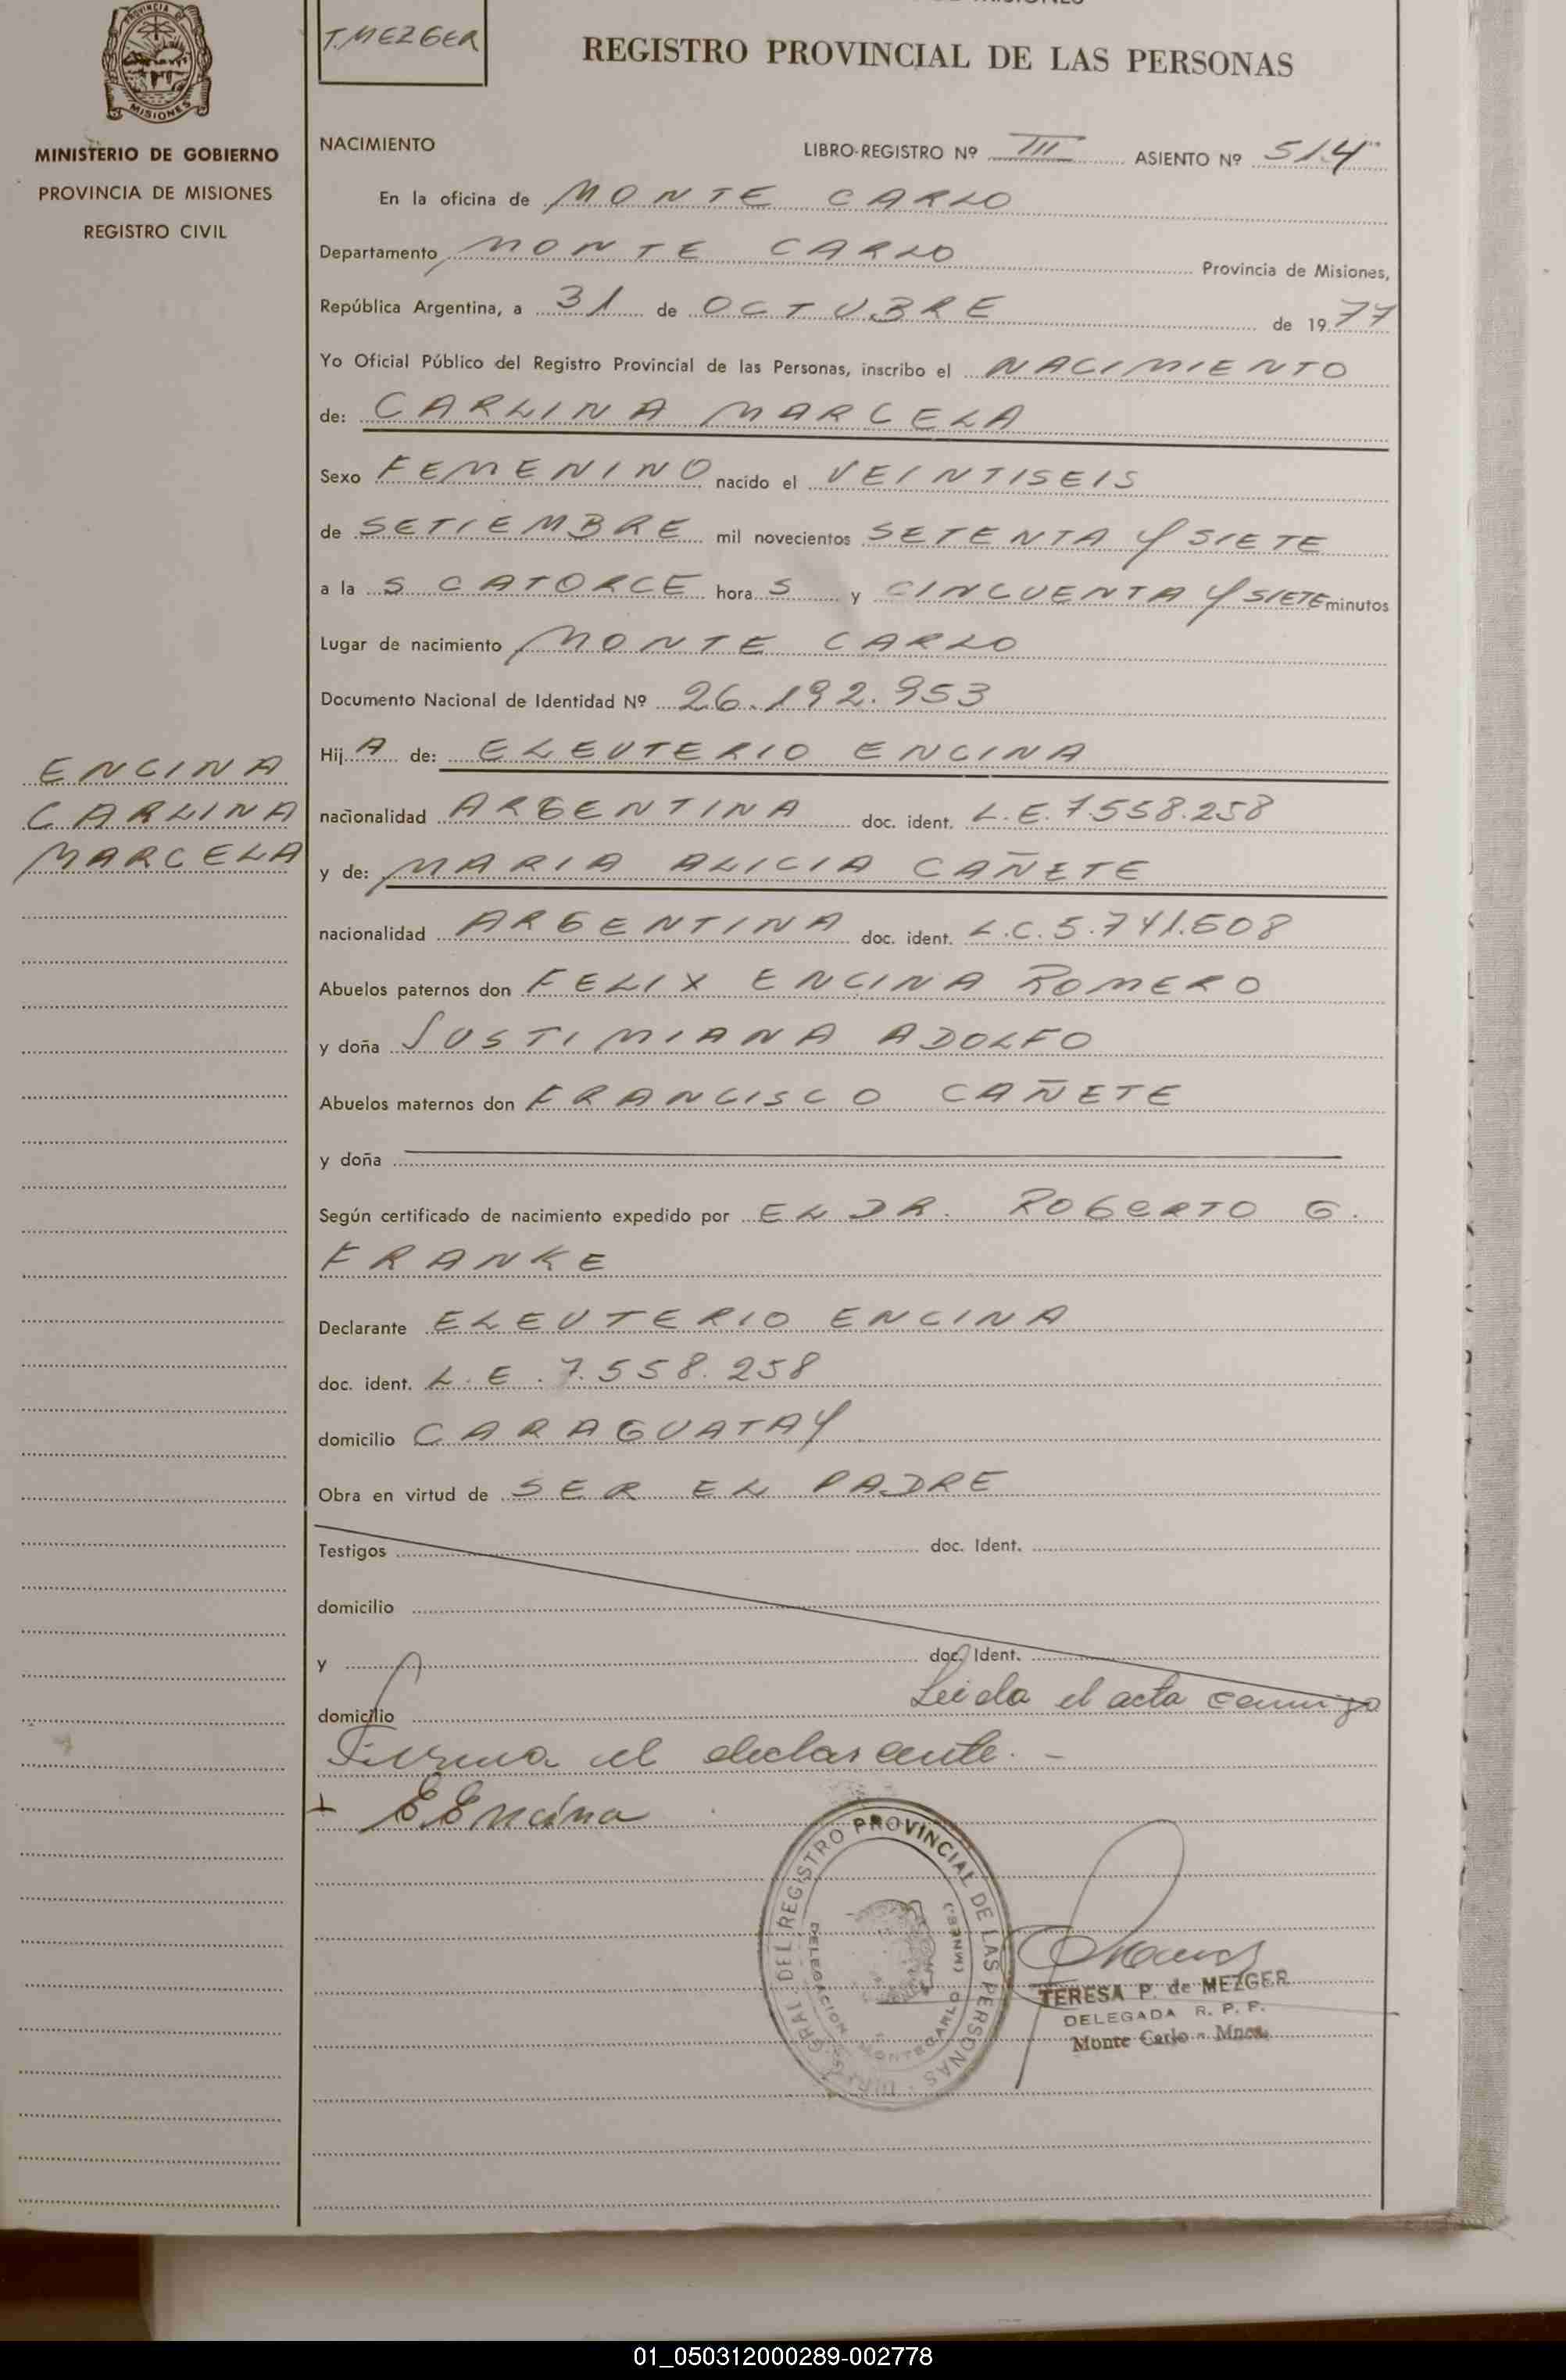 T. MEZGER
REGISTRO PROVINCIAL DE LAS PERSONAS
PROVINCIA DE
MISIONES
MINISTERIO DE GOBIERNO
PROVINCIA DE MISIONES
REGISTRO CIVIL
NACIMIENTO
LIBRO-REGISTRO Nº III ASIENTO Nº 514
En la oficina de MONTE CARLO
Departamento MONTE CARLO Provincia de Misiones,
República Argentina, a 31 de OCTUBRE de 1977
Yo Oficial Público del Registro Provincial de las Personas, inscribo el NACIMIENTO
de: CARLINA MARCELA
Sexo FEMENINO nacido el VEINTISEIS
de SETIEMBRE mil novecientos SETENTA Y SIETE
a la S CATORCE hora S y CINCUENTA Y SIETE minutos
Lugar de nacimiento MONTE CARLO
Documento Nacional de Identidad Nº 26.192.953
Hij A de: ELEUTERIO ENCINA
ENCINA
CARLINA
MARCELA
nacionalidad ARGENTINA doc. ident. L.E. 7.558.258
y de: MARIA ALICIA CAÑETE
nacionalidad ARGENTINA doc. ident. L.C. 5.741.608
Abuelos paternos don FELIX ENCINA ROMERO
y doña JUSTIMIANA ADOLFO
Abuelos maternos don FRANCISCO CAÑETE
y doña
Según certificado de nacimiento expedido por EL DR. ROBERTO G.
FRANKE
Declarante ELEUTERIO ENCINA
doc. ident. L.E. 7.558.258
domicilio CARAGUATAY
Obra en virtud de SER EL PADRE
Testigos doc. Ident.
domicilio
y doc. Ident.
domicilio Leida el acta conmigo
Firma el declarante.-
+ E Encina
GRAL. DEL REGISTRO PROVINCIAL DE LAS PERSONAS
DELEGACION MONTECARLO (MNES.)
TERESA P. de MEZGER
DELEGADA R. P. P.
Monte Carlo - Mnes.
01_050312000289-002778